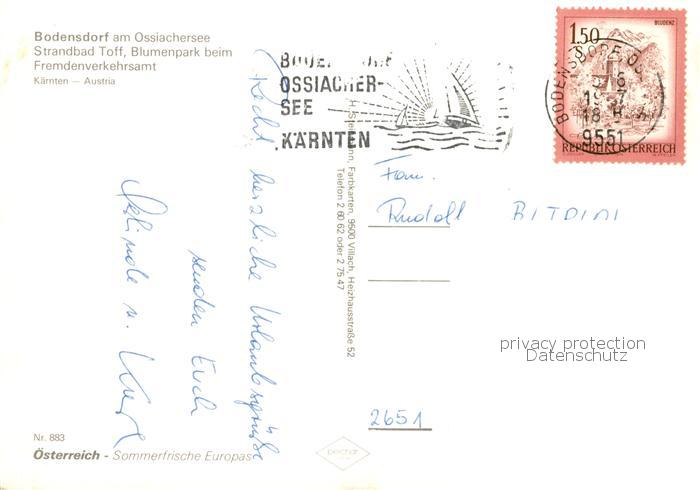 Bodensdorf am Ossiachersee
Strandbad Toff, Blumenpark beim
Fremdenverkehrsamt
Kärnten — Austria
OSSIACHER-
SEE
KÄRNTEN
BLUDENZ
1.50
BODENSDORF
18
9551
REPUBLIK ÖSTERREICH
Recht herzliche Urlaubsgrüße
senden Euch
u. Kurt
Farbkarten, 9500 Villach, Heizhausstraße 52
Telefon 2 60 62 oder 2 75 47
Fam.
Rudolf
2651
privacy protection
Datenschutz
Nr. 883
Österreich - Sommerfrische Europas